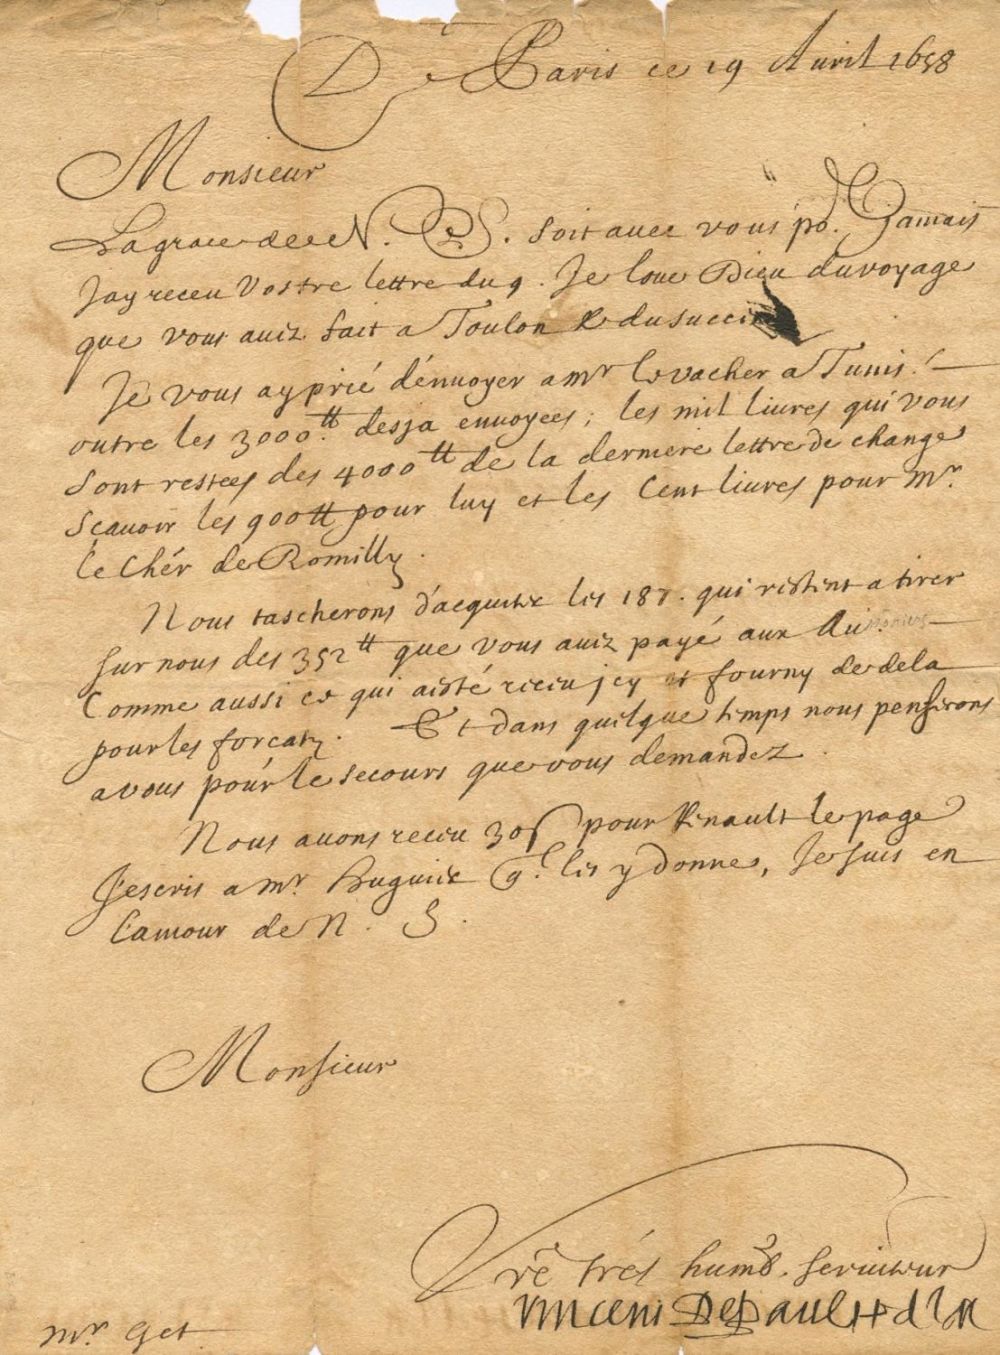 De Paris ce 19 Avril 1658
Monsieur
La grace de N. S. soit avec vous po.r Jamais
J'ay receu Vostre lettre du 9. Je loue Dieu du voyage
que vous aviz fait a Toulon & du succez
Je vous ay prié d'envoyer a mr le vacher a Tunis
outre les 3000 tt desja envoyées; les mil livres qui vous
sont restées des 4000 tt de la derniere lettre de change
Scavoir les 900 tt pour luy et les Cent livres pour mr.
le Chér de Romilly.
Nous tascherons d'acquiter les 187. qui restent a tirer
sur nous des 352 tt que vous aviz payé aux
Comme aussi ce qui a esté receu icy et fourny de dela
pour les forcatz. Et dans quelque temps nous penserons
a vous pour le secours que vous demandez.
Nous avons receu 30 s pour Renault le page
J'escris a mr huguier q.l les y donne, Je suis en
l'amour de N. S.
Monsieur
Vrē trés humb. serviteur
Vincent DePaul
mr Get